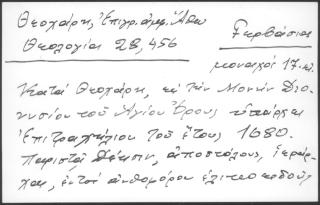 Θεοχάρη, Ἐπιγρ. ἀμφ. Ἄθω
Θεολογία 28, 456
Γερβάσιος
μοναχοί 17. αἰ.
Κατά Θεοχάρη, εἰς τήν Μονήν Διο-
νυσίου τοῦ Ἁγίου Ὄρους ὑπάρχει
Ἐπιτραχήλιον τοῦ ἔτους 1680.
Παριστᾷ Δέησιν, ἀποστόλους, ἱεράρ-
χας, ἐντός ἀνθοφόρου ἑλικοειδοῦς